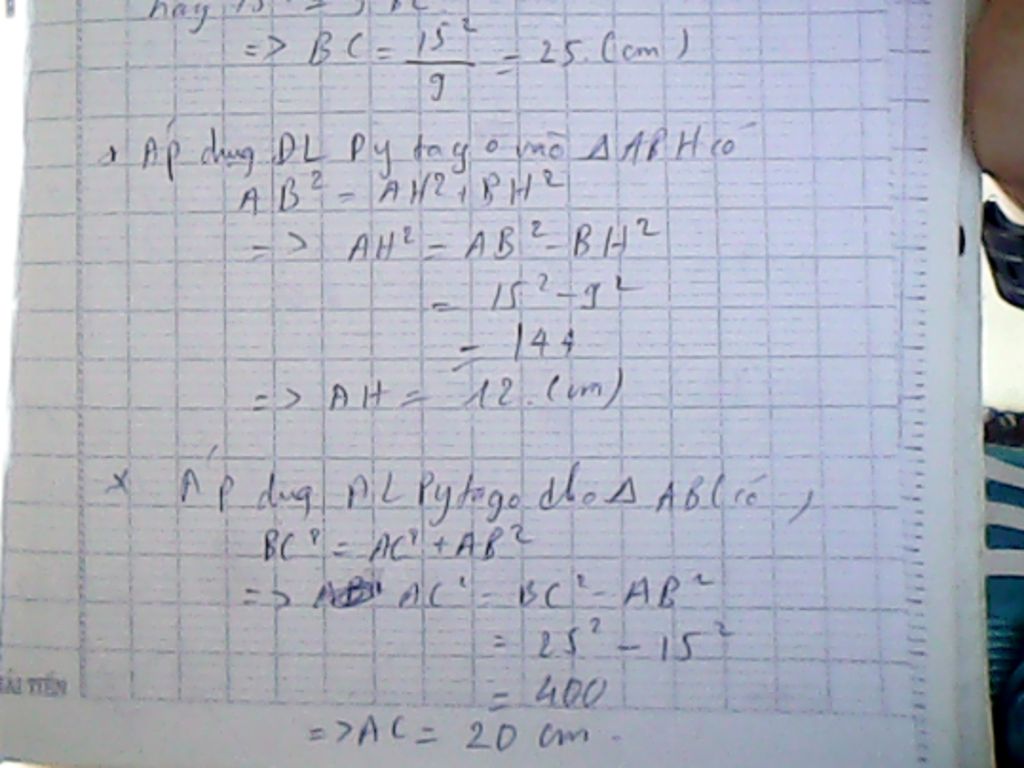 hay 15² = 9 BC
=> BC = 15²/9 = 25. (cm)
* Áp dụng DL Pytago vào Δ ABH có
AB² = AH² + BH²
=> AH² = AB² - BH²
= 15² - 9²
= 144
=> AH = 12. (cm)
* Áp dụng DL Pytago cho Δ ABC có,
BC² = AC² + AB²
=> AC² = BC² - AB²
= 25² - 15²
= 400
=> AC = 20 cm.
HẢI TIẾN